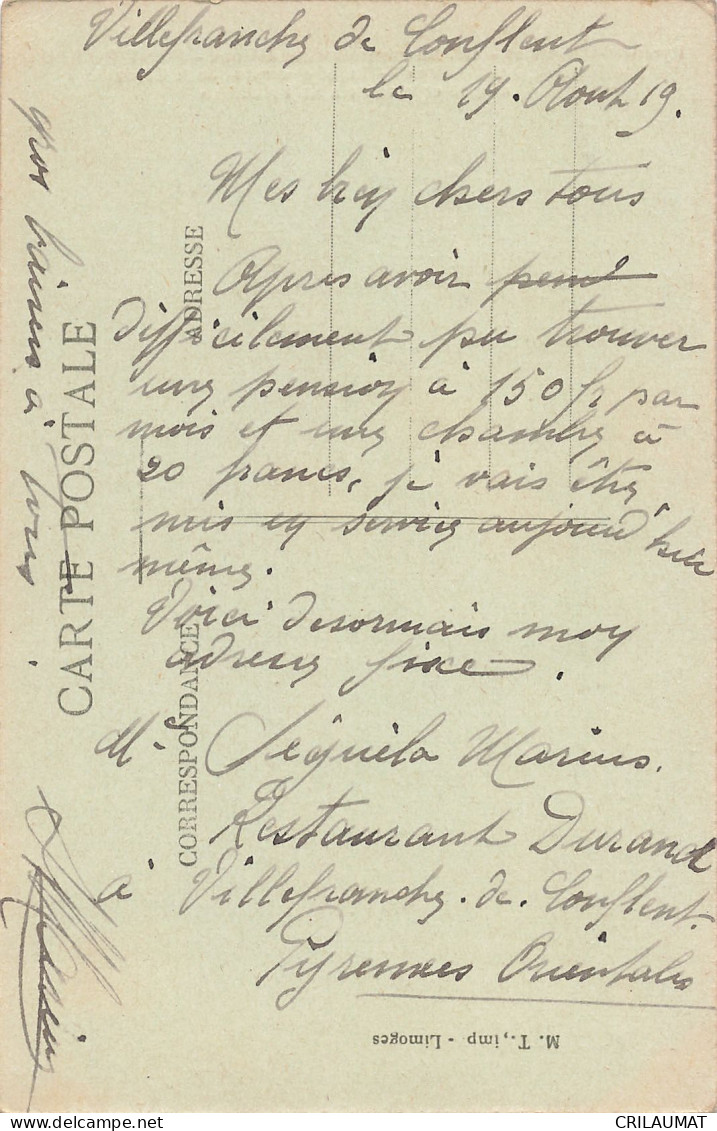 Villefranche de Conflent
le 19. Aout 19.
Mes bien chers tous
Apres avoir
difficilement pu trouver
une pension à 150 fr par
mois et une chambre à
20 francs, je vais être
mis en service aujourd'hui
même.
Voici desormais mon
adresse fixe.
Mr Séguéla Marius.
Restaurant Durand
à Villefranche. de. Conflent.
Pyrennées Orientales
gros baisers à tous
Marius
CARTE POSTALE
ADRESSE
CORRESPONDANCE
M. T., imp - Limoges
CRILAUMAT